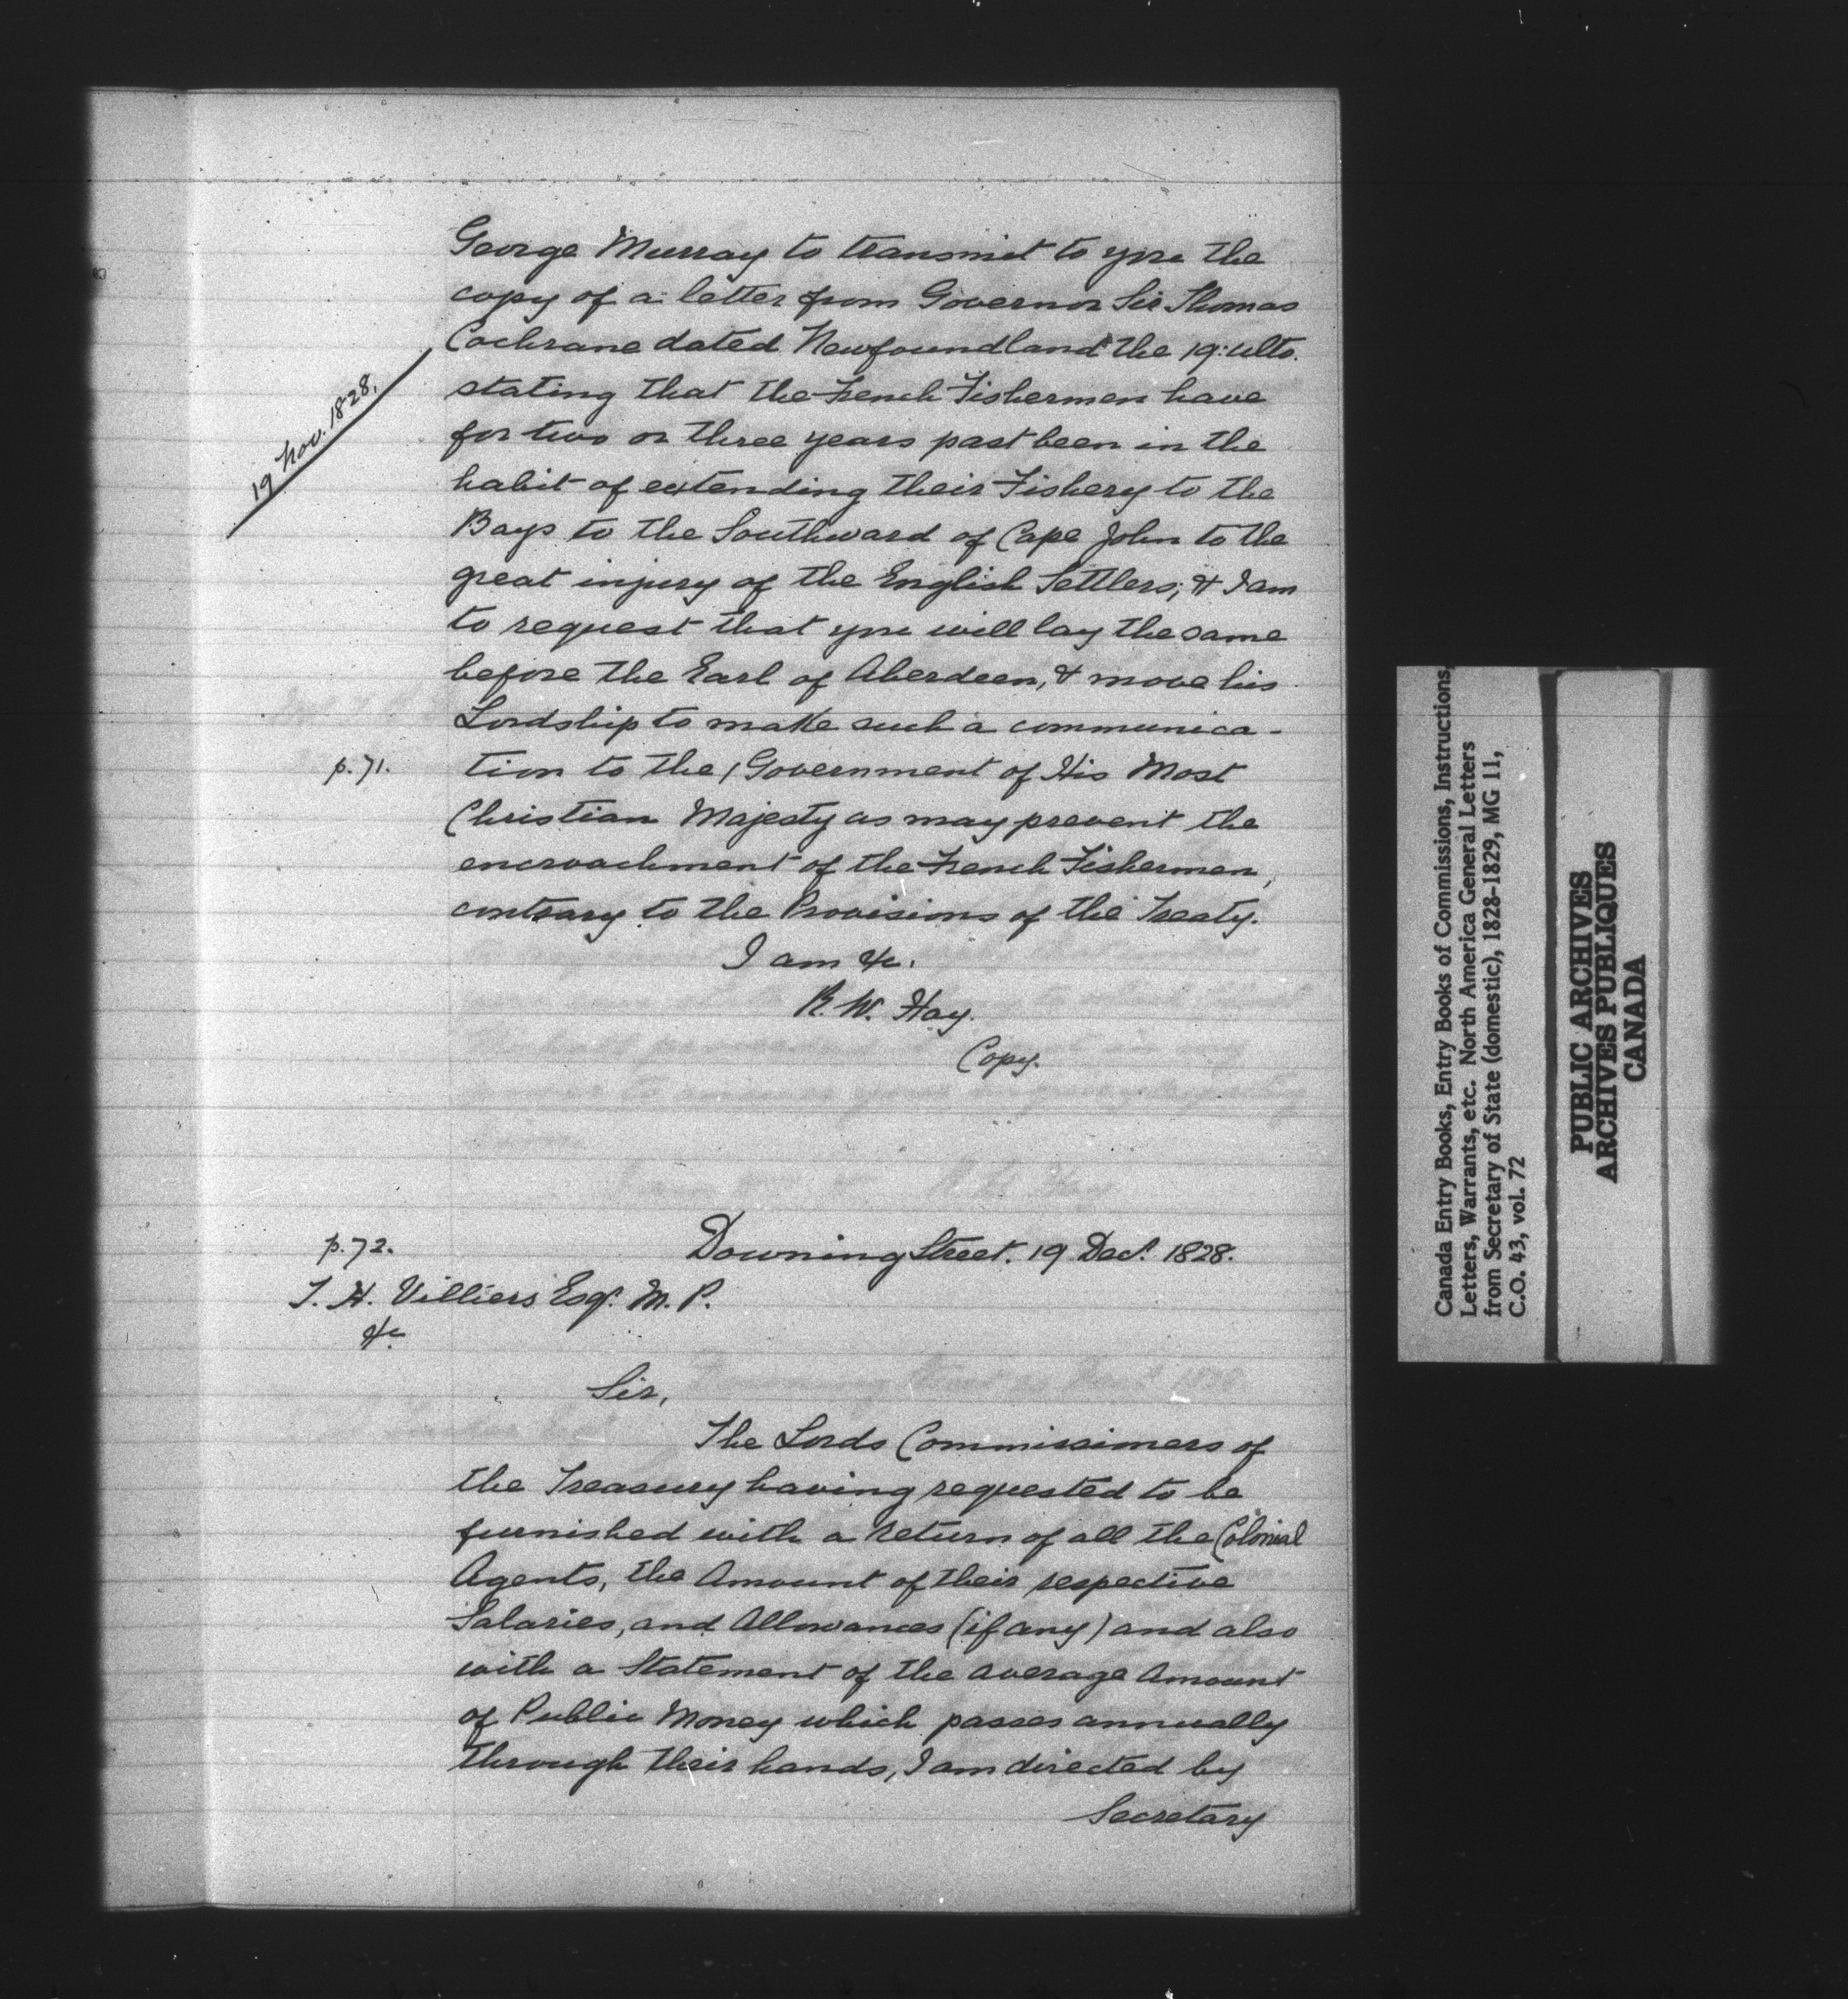 George Murray to transmit to you the
copy of a letter from Governor Sir Thomas
Cochrane dated Newfoundland the 19: ulto.
19 Nov. 1828.
stating that the French Fishermen have
for two or three years past been in the
habit of extending their Fishery to the
Bays to the Southward of Cape John to the
great injury of the English Settlers; & I am
to request that you will lay the same
before the Earl of Aberdeen, & move his
Lordship to make such a communica-
p. 71. tion to the / Government of His Most
Christian Majesty as may prevent the
encroachment of the French Fishermen,
contrary to the Provisions of the Treaty.
I am &c.
R. W. Hay.
Copy.
p. 72. Downing Street. 19 Decr. 1828.
T. H. Villiers Esqr. M. P.
&c
Sir,
The Lords Commissioners of
the Treasury having requested to be
furnished with a return of all the Colonial
Agents, the Amount of their respective
Salaries, and Allowances (if any) and also
with a Statement of the average Amount
of Public Money which passes annually
through their hands, I am directed by
Secretary
Canada Entry Books, Entry Books of Commissions, Instructions,
Letters, Warrants, etc. North America General Letters
from Secretary of State (domestic), 1828-1829, MG 11,
C.O. 43, vol. 72
PUBLIC ARCHIVES
ARCHIVES PUBLIQUES
CANADA